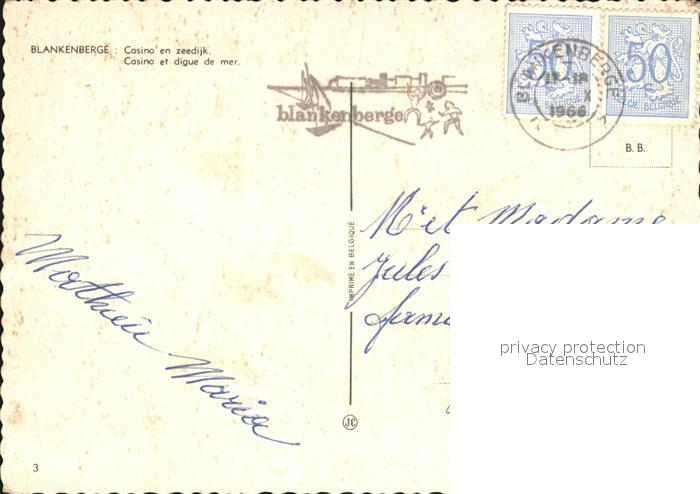 BLANKENBERGE : Casino en zeedijk.
Casino et digue de mer.
blankenberge
BLANKENBERGE
1966
50
50
B. B.
IMPRIME EN BELGIQUE
Mr et Madame
Jules
Mathieu Maria
privacy protection
Datenschutz
JC
3